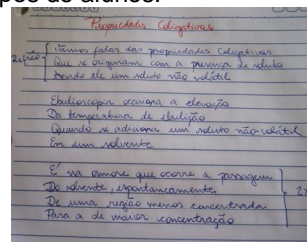 Propriedades Coligativas
2x refrão
Vamos falar das propriedades coligativas
Que se originam com a presença do soluto
Sendo ele um soluto não volátil
Ebulioscopia ocasiona a elevação
Da temperatura de ebulição
Quando se adiciona um soluto não-volátil
Em um solvente
É na osmose que ocorre a passagem
Do solvente, espontaneamente
De uma região menos concentrada
Para a de maior concentração
2x